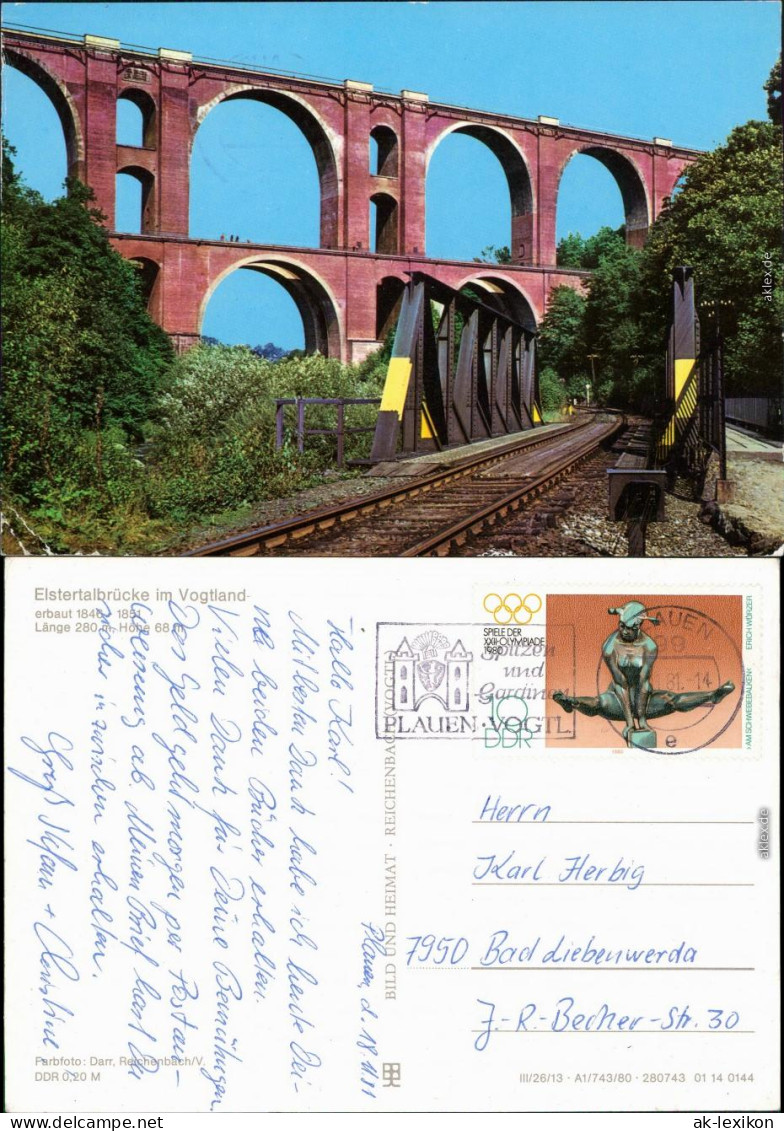 aklex.de
Elstertalbrücke im Vogtland
erbaut 1846 - 1851
Länge 280 m, Höhe 68 m
Hallo Karl!
Mit bestem Dank habe ich heute Dei-
ne beiden Bücher erhalten.
Vielen Dank für Deine Bemühungen.
Das Geld geht morgen per Postan-
weisung ab. Meinen Brief hast Du
sicher inzwischen erhalten.
Gruß Stefan + Christine
Plauen, d. 18.11.81
Farbfoto: Darr, Reichenbach/V.
DDR 0,20 M
BILD UND HEIMAT · REICHENBACH (VOGTL)
SPIELE DER
XXII. OLYMPIADE
1980
10
DDR
›AM SCHWEBEBALKEN‹
ERICH WÜRZER
Spitzen
und
Gardinen
PLAUEN · VOGTL
PLAUEN
99
81.-14
e
Herrn
Karl Herbig
7950 Bad Liebenwerda
J.-R.-Becher-Str. 30
III/26/13 · A1/743/80 · 280743 01 14 0144
aklex.de
www.ak-lexikon.de
ak-lexikon.com